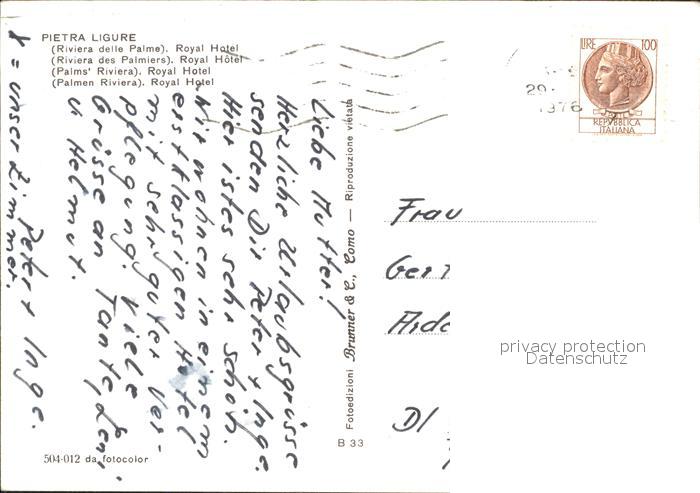 PIETRA LIGURE
(Riviera delle Palme). Royal Hotel
(Riviera des Palmiers). Royal Hôtel
(Palms' Riviera). Royal Hotel
(Palmen Riviera). Royal Hotel
Liebe Mutter!
Herzliche Urlaubsgrüsse
senden Dir Peter + Inge.
Hier ist es sehr schön.
Wir wohnen in einem
erstklassigen Hotel
mit sehr guter Ver-
pflegung. Viele
Grüsse an Tante Leni
u Helmut.
Peter + Inge.
X = unser Zimmer.
504-012 da fotocolor
Fotoedizioni Brunner & C., Como — Riproduzione vietata
B 33
LIRE 100
REPVBBLICA
ITALIANA
29.
1976
Frau
Ger
Arde
Dl
privacy protection
Datenschutz